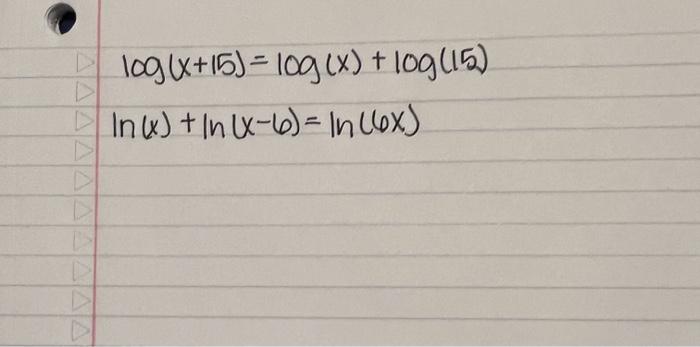 log(x+15)=log(x)+log(15)
ln(x)+ln(x-6)=ln(6x)